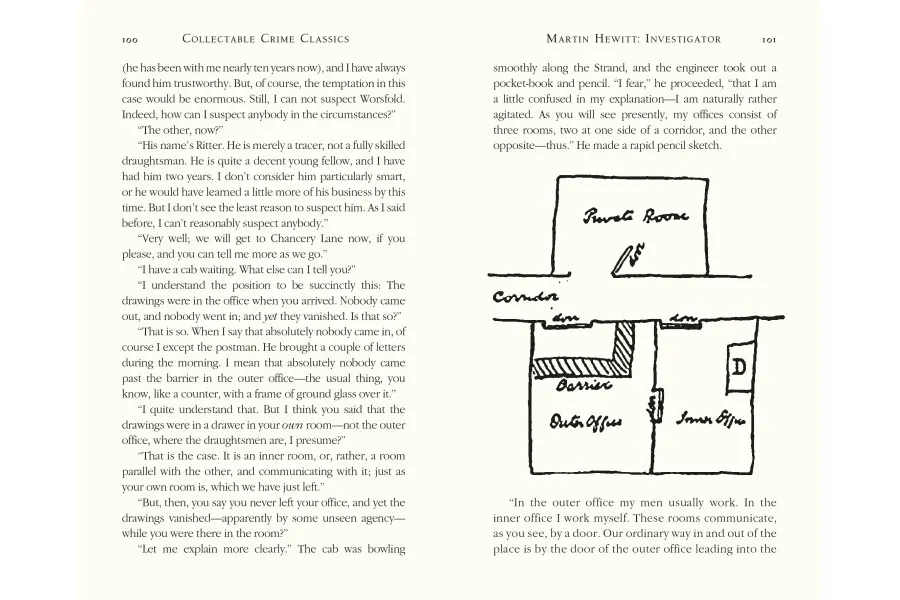 100
COLLECTABLE CRIME CLASSICS
(he has been with me nearly ten years now), and I have always
found him trustworthy. But, of course, the temptation in this
case would be enormous. Still, I can not suspect Worsfold.
Indeed, how can I suspect anybody in the circumstances?”
“The other, now?”
“His name’s Ritter. He is merely a tracer, not a fully skilled
draughtsman. He is quite a decent young fellow, and I have
had him two years. I don’t consider him particularly smart,
or he would have learned a little more of his business by this
time. But I don’t see the least reason to suspect him. As I said
before, I can’t reasonably suspect anybody.”
“Very well; we will get to Chancery Lane now, if you
please, and you can tell me more as we go.”
“I have a cab waiting. What else can I tell you?”
“I understand the position to be succinctly this: The
drawings were in the office when you arrived. Nobody came
out, and nobody went in; and yet they vanished. Is that so?”
“That is so. When I say that absolutely nobody came in, of
course I except the postman. He brought a couple of letters
during the morning. I mean that absolutely nobody came
past the barrier in the outer office—the usual thing, you
know, like a counter, with a frame of ground glass over it.”
“I quite understand that. But I think you said that the
drawings were in a drawer in your own room—not the outer
office, where the draughtsmen are, I presume?”
“That is the case. It is an inner room, or, rather, a room
parallel with the other, and communicating with it; just as
your own room is, which we have just left.”
“But, then, you say you never left your office, and yet the
drawings vanished—apparently by some unseen agency—
while you were there in the room?”
“Let me explain more clearly.” The cab was bowling
MARTIN HEWITT: INVESTIGATOR
101
smoothly along the Strand, and the engineer took out a
pocket-book and pencil. “I fear,” he proceeded, “that I am
a little confused in my explanation—I am naturally rather
agitated. As you will see presently, my offices consist of
three rooms, two at one side of a corridor, and the other
opposite—thus.” He made a rapid pencil sketch.
Private Room
door
Corridor
door
door
Barrier
D
door
Outer Office
Inner Office
“In the outer office my men usually work. In the
inner office I work myself. These rooms communicate,
as you see, by a door. Our ordinary way in and out of the
place is by the door of the outer office leading into the